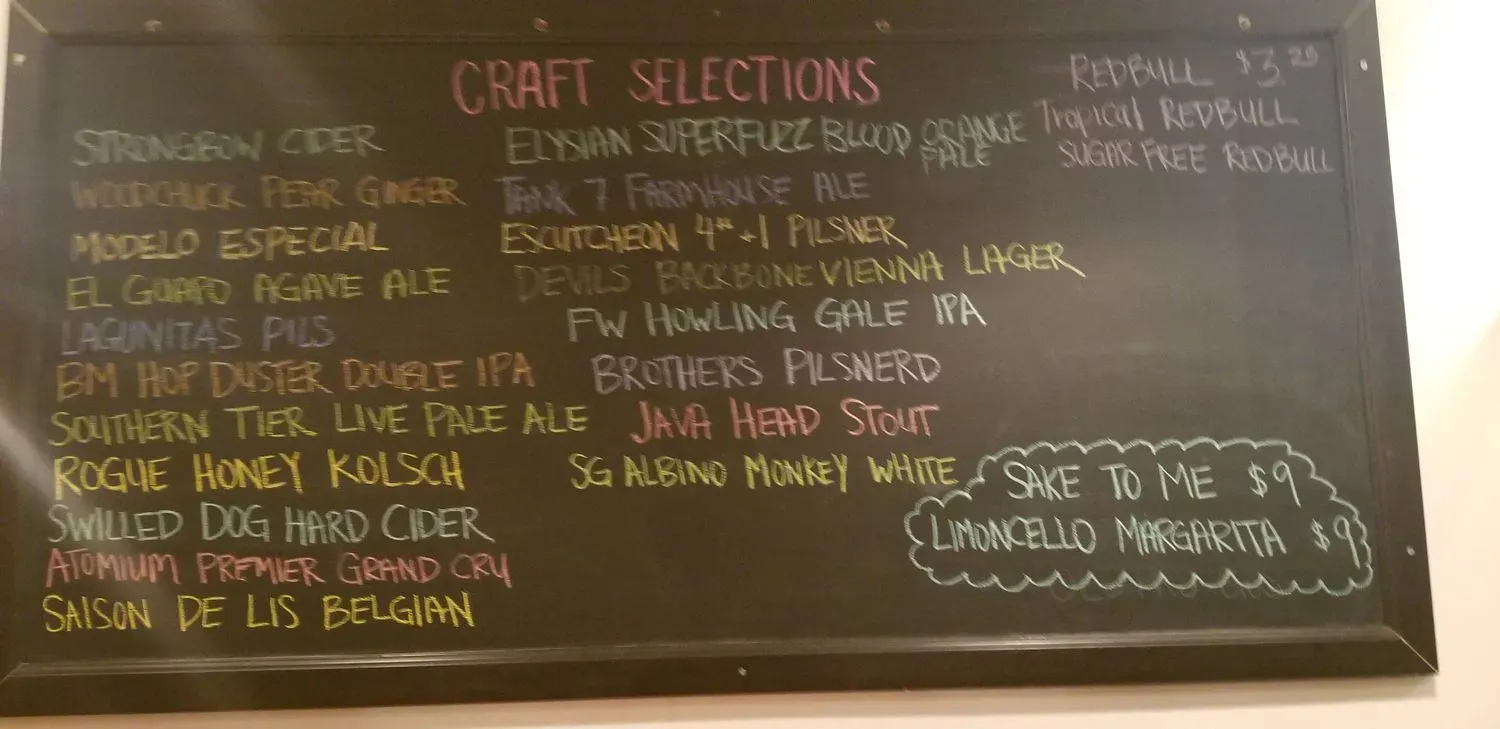 CRAFT SELECTIONS
STRONGBOW CIDER
WOODCHUCK PEAR GINGER
MODELO ESPECIAL
EL GUAPO AGAVE ALE
LAGUNITAS PILS
BM HOP DUSTER DOUBLE IPA
SOUTHERN TIER LIVE PALE ALE
ROGUE HONEY KOLSCH
SWILLED DOG HARD CIDER
ATOMIUM PREMIER GRAND CRU
SAISON DE LIS BELGIAN
ELYSIAN SUPERFUZZ BLOOD ORANGE
PALE
TANK 7 FARMHOUSE ALE
ESCUTCHEON 4 +1 PILSNER
DEVILS BACKBONE VIENNA LAGER
FW HOWLING GALE IPA
BROTHERS PILSNERD
JAVA HEAD STOUT
SG ALBINO MONKEY WHITE
REDBULL $3.
Tropical REDBULL
SUGAR FREE REDBULL
SAKE TO ME $9
LIMONCELLO MARGARITA $9